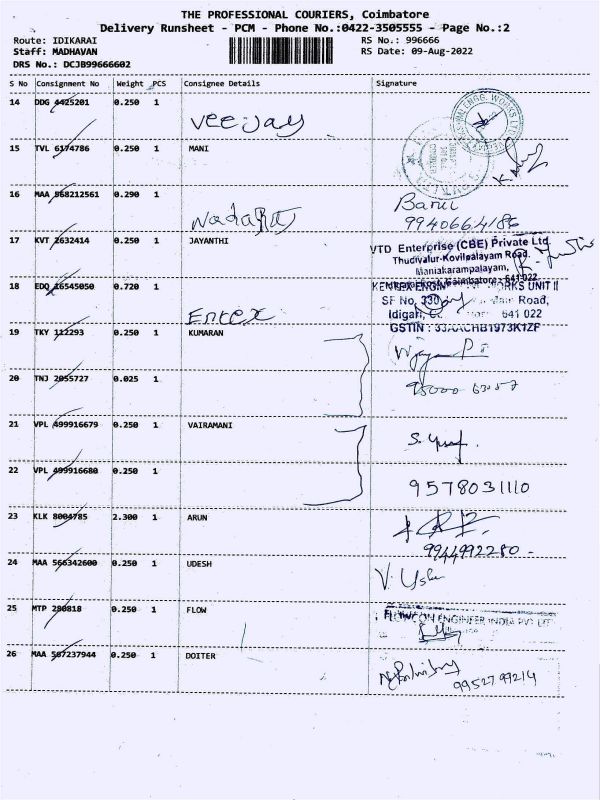 THE PROFESSIONAL COURIERS, Coimbatore
Delivery Runsheet - PCM - Phone No.:0422-3505555 - Page No.:2
Route: IDIKARAI
RS No.: 996666
Staff: MADHAVAN
RS Date: 09-Aug-2022
DRS No.: DCJB99666602
S No Consignment No Weight PCS Consignee Details Signature
14 DDG 4425201 0.250 1 Veejay
15 TVL 6174786 0.250 1 MANI
16 MAA 568212561 0.290 1
Banu
9940664186
17 KVT 2632414 0.250 1 JAYANTHI
VTD Enterprise (CBE) Private Ltd.
Thudiyalur-Kovilpalayam Road,
Maniakarampalayam,
Coimbatore - 641 022
18 EDQ 16545050 0.720 1 Entex
UNIT II
SF No. 330 Road,
641 022
GSTIN : 33AACHB1973K1ZF
19 TKY 112293 0.250 1 KUMARAN
20 TNJ 2055727 0.025 1
21 VPL 499916679 0.250 1 VAIRAMANI
22 VPL 499916680 0.250 1
9578031110
23 KLK 8004785 2.300 1 ARUN
9944992280 -
24 MAA 566342600 0.250 1 UDESH
25 MTP 280818 0.250 1 FLOW
FLOWCON ENGINEER INDIA PVT LTD
26 MAA 567237944 0.250 1 DOITER
9952799214